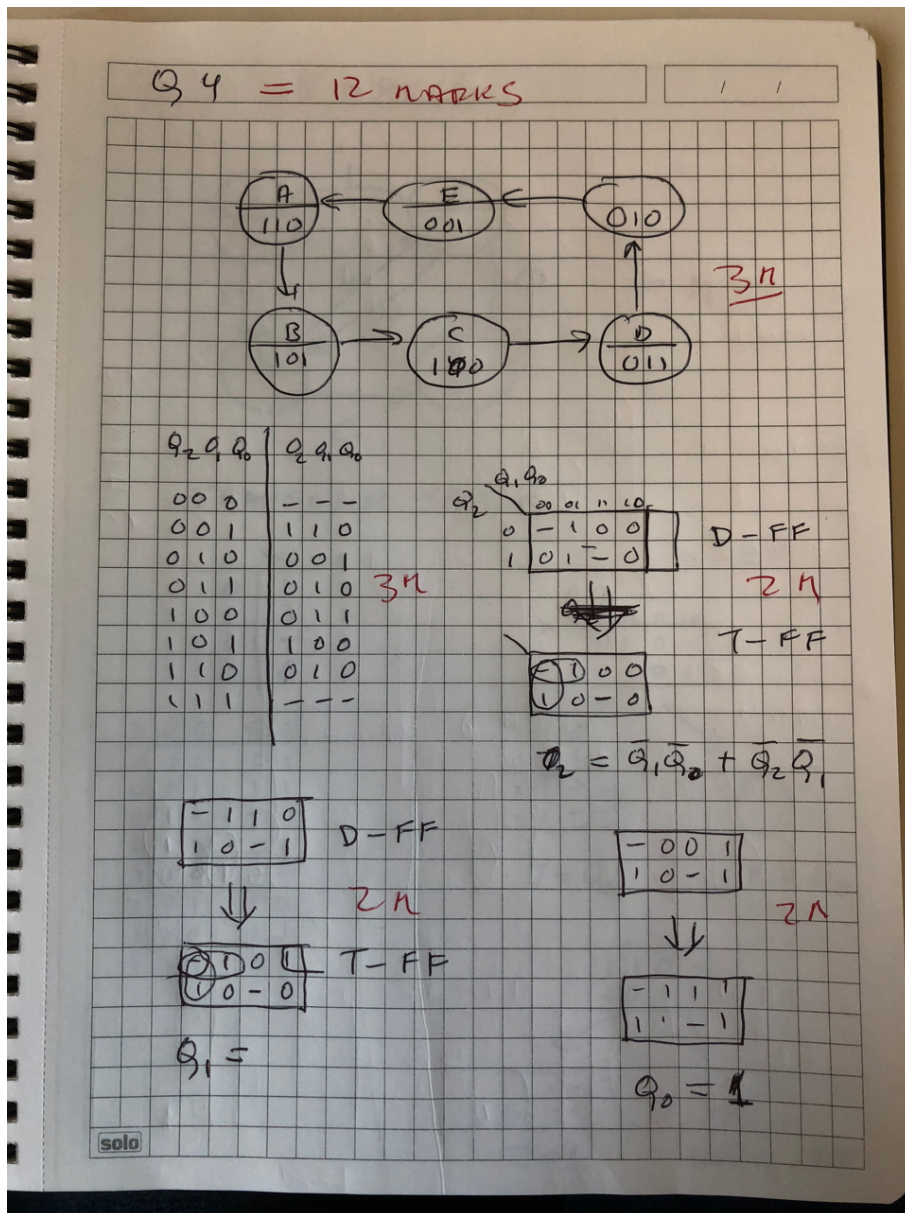 Q4 = 12 MARKS
/ /
A E
110 001 010
3M
B C D
101 100 011
Q2 Q1 Q0 | Q2 Q1 Q0
000 | - - -
001 | 110
010 | 001
011 | 010
100 | 011
101 | 100
110 | 010
111 | - - -
3M
Q1 Q0
Q2 00 01 11 10
0 - 1 0 0 D-FF
1 0 1 - 0
2M
T-FF
- 1 0 0
1 0 - 0
Q̄1Q̄0 + Q̄2Q̄1
- 1 1 0
1 0 - 1
D-FF
2M
- 1 0 1 T-FF
1 0 - 0
Q1 =
- 0 0 1
1 0 - 1
2M
- 1 1 1
1 1 - 1
Q0 = 1
solo